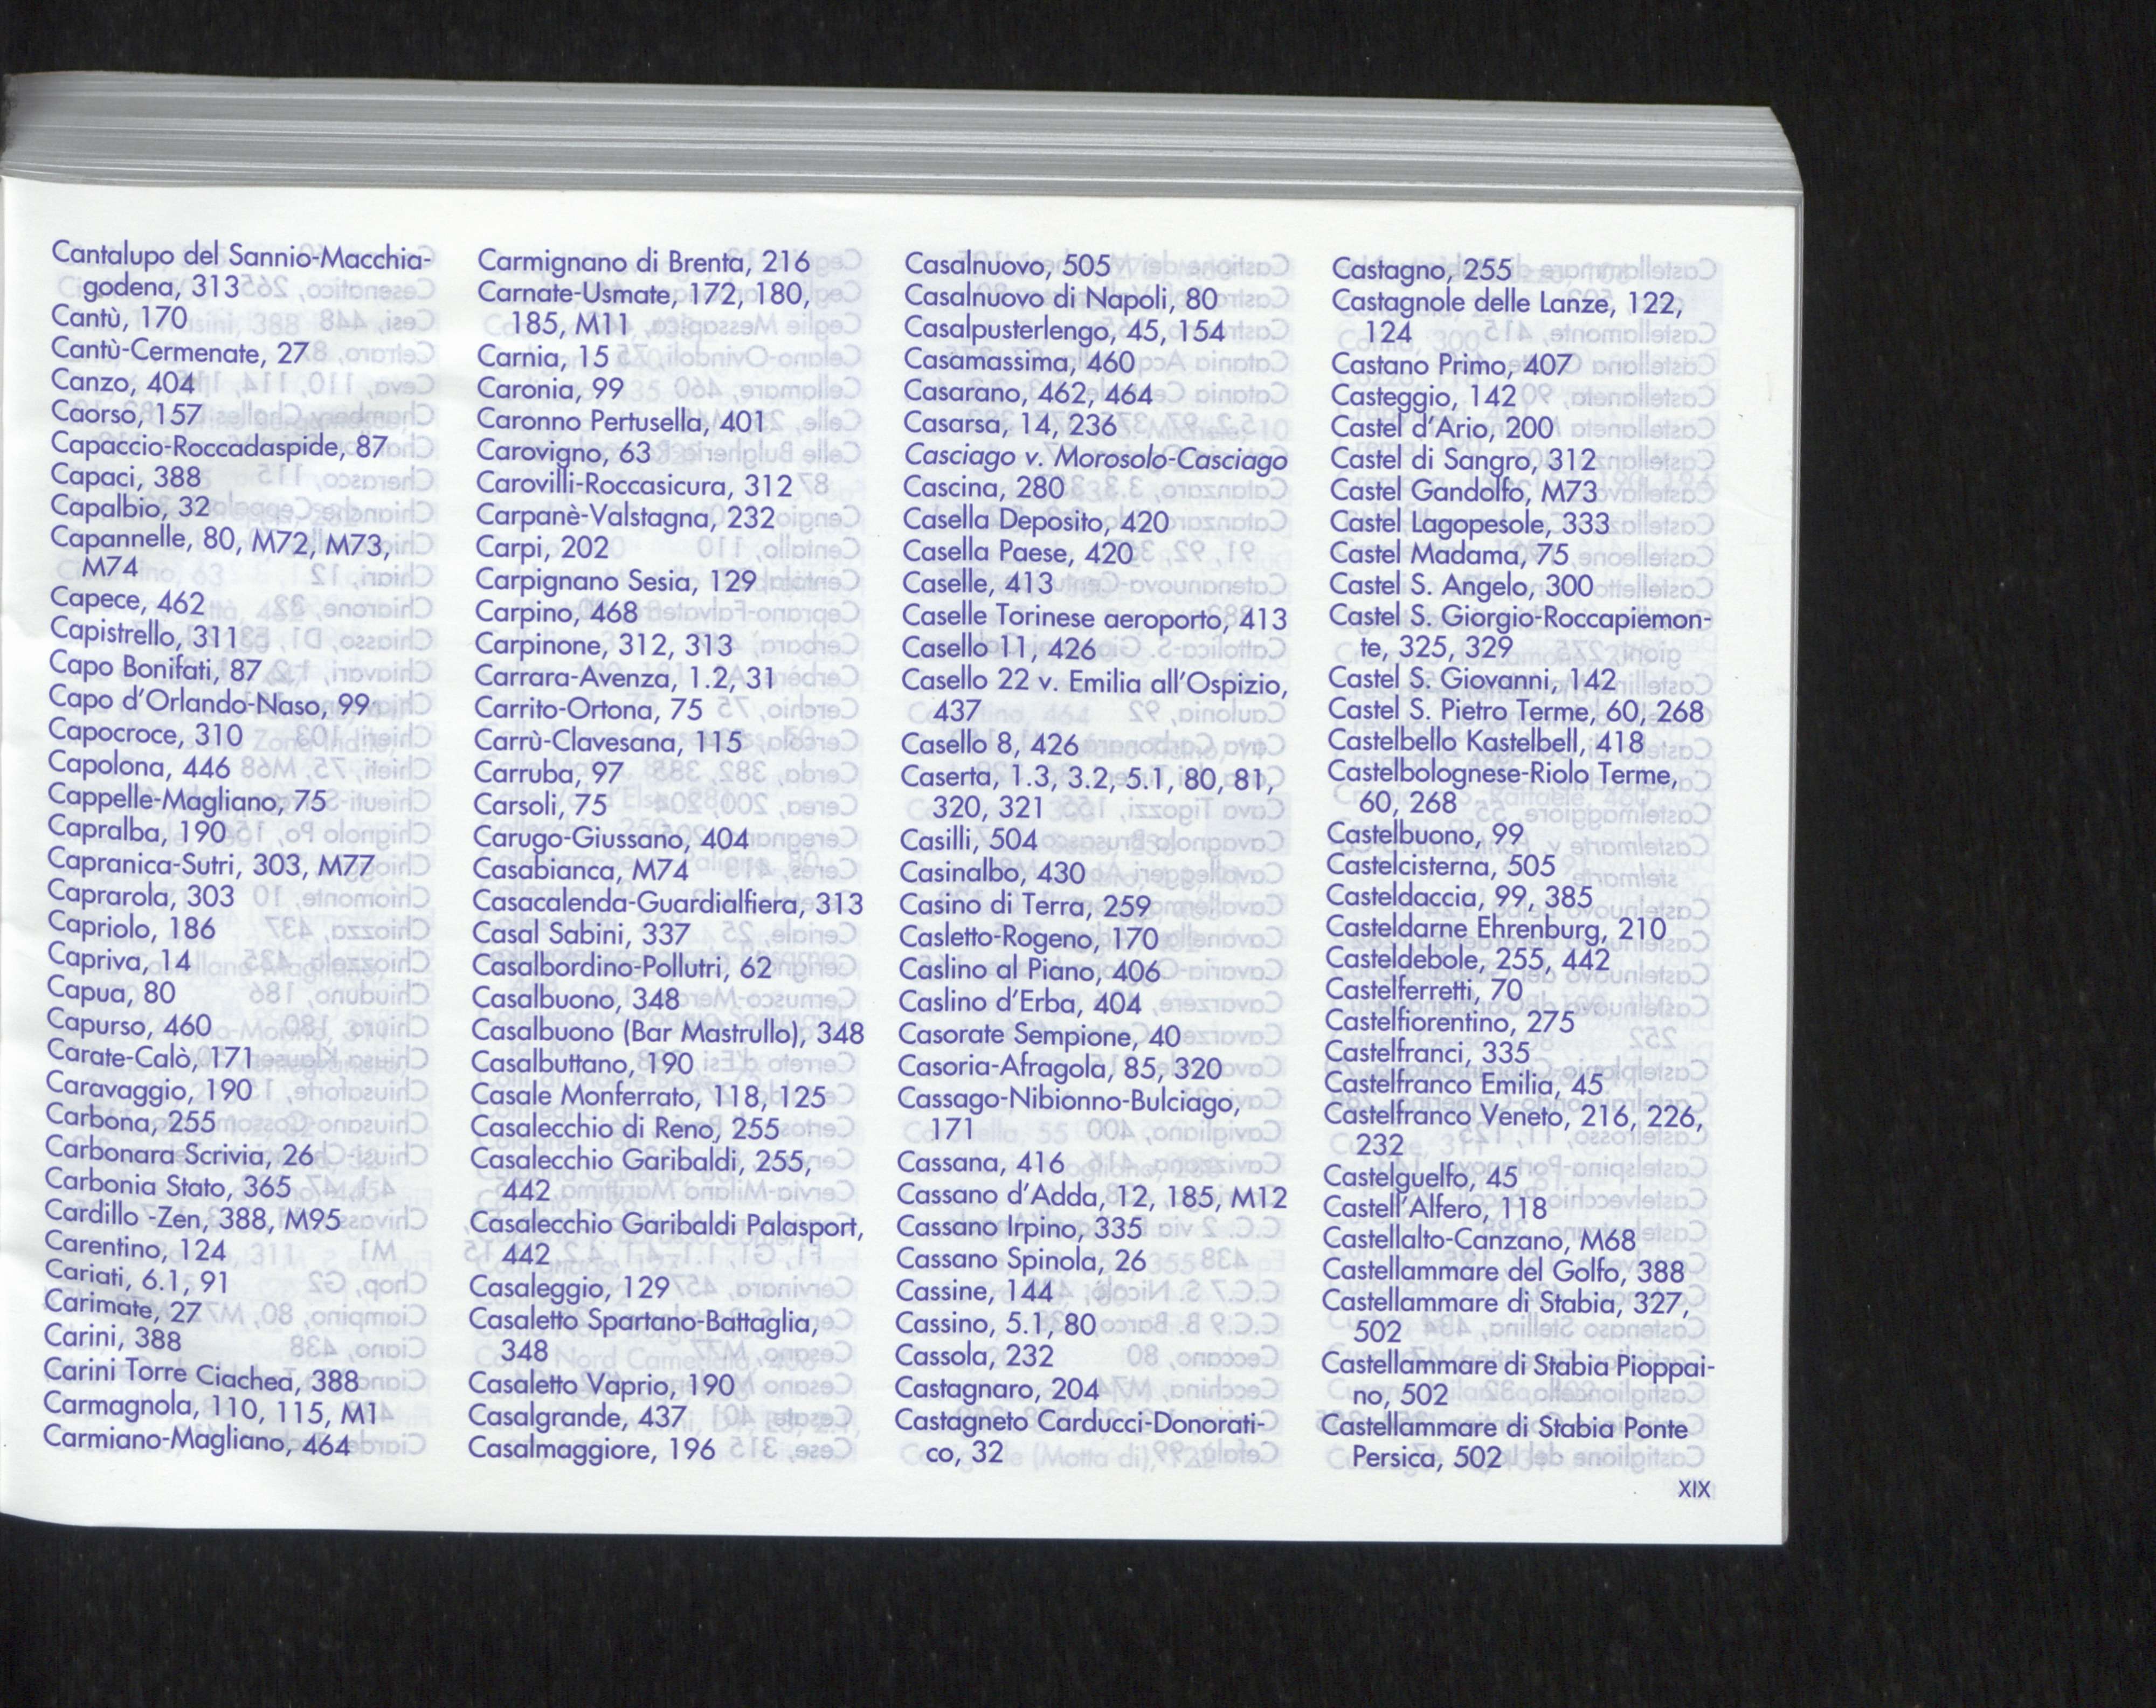 Cantalupo del Sannio-Macchia-
godena, 313
Cantù, 170
Cantù-Cermenate, 27
Canzo, 404
Caorso, 157
Capaccio-Roccadaspide, 87
Capaci, 388
Capalbio, 32
Capannelle, 80, M72, M73,
M74
Capece, 462
Capistrello, 311
Capo Bonifati, 87
Capo d'Orlando-Naso, 99
Capocroce, 310
Capolona, 446
Cappelle-Magliano, 75
Capralba, 190
Capranica-Sutri, 303, M77
Caprarola, 303
Capriolo, 186
Capriva, 14
Capua, 80
Capurso, 460
Carate-Calò, 171
Caravaggio, 190
Carbona, 255
Carbonara Scrivia, 26
Carbonia Stato, 365
Cardillo -Zen, 388, M95
Carentino, 124
Cariati, 6.1, 91
Carimate, 27
Carini, 388
Carini Torre Ciachea, 388
Carmagnola, 110, 115, M1
Carmiano-Magliano, 464
Carmignano di Brenta, 216
Carnate-Usmate, 172, 180,
185, M11
Carnia, 15
Caronia, 99
Caronno Pertusella, 401
Carovigno, 63
Carovilli-Roccasicura, 312
Carpanè-Valstagna, 232
Carpi, 202
Carpignano Sesia, 129
Carpino, 468
Carpinone, 312, 313
Carrara-Avenza, 1.2, 31
Carrito-Ortona, 75
Carrù-Clavesana, 115
Carruba, 97
Carsoli, 75
Carugo-Giussano, 404
Casabianca, M74
Casacalenda-Guardialfiera, 313
Casal Sabini, 337
Casalbordino-Pollutri, 62
Casalbuono, 348
Casalbuono (Bar Mastrullo), 348
Casalbuttano, 190
Casale Monferrato, 118, 125
Casalecchio di Reno, 255
Casalecchio Garibaldi, 255,
442
Casalecchio Garibaldi Palasport,
442
Casaleggio, 129
Casaletto Spartano-Battaglia,
348
Casaletto Vaprio, 190
Casalgrande, 437
Casalmaggiore, 196
Casalnuovo, 505
Casalnuovo di Napoli, 80
Casalpusterlengo, 45, 154
Casamassima, 460
Casarano, 462, 464
Casarsa, 14, 236
Casciago v. Morosolo-Casciago
Cascina, 280
Casella Deposito, 420
Casella Paese, 420
Caselle, 413
Caselle Torinese aeroporto, 413
Casello 11, 426
Casello 22 v. Emilia all'Ospizio,
437
Casello 8, 426
Caserta, 1.3, 3.2, 5.1, 80, 81,
320, 321
Casilli, 504
Casinalbo, 430
Casino di Terra, 259
Casletto-Rogeno, 170
Caslino al Piano, 406
Caslino d'Erba, 404
Casorate Sempione, 40
Casoria-Afragola, 85, 320
Cassago-Nibionno-Bulciago,
171
Cassana, 416
Cassano d'Adda, 12, 185, M12
Cassano Irpino, 335
Cassano Spinola, 26
Cassine, 144
Cassino, 5.1, 80
Cassola, 232
Castagnaro, 204
Castagneto Carducci-Donorati-
co, 32
Castagno, 255
Castagnole delle Lanze, 122,
124
Castano Primo, 407
Casteggio, 142
Castel d'Ario, 200
Castel di Sangro, 312
Castel Gandolfo, M73
Castel Lagopesole, 333
Castel Madama, 75
Castel S. Angelo, 300
Castel S. Giorgio-Roccapiemon-
te, 325, 329
Castel S. Giovanni, 142
Castel S. Pietro Terme, 60, 268
Castelbello Kastelbell, 418
Castelbolognese-Riolo Terme,
60, 268
Castelbuono, 99
Castelcisterna, 505
Casteldaccia, 99, 385
Casteldarne Ehrenburg, 210
Casteldebole, 255, 442
Castelferretti, 70
Castelfiorentino, 275
Castelfranci, 335
Castelfranco Emilia, 45
Castelfranco Veneto, 216, 226,
232
Castelguelfo, 45
Castell'Alfero, 118
Castellalto-Canzano, M68
Castellammare del Golfo, 388
Castellammare di Stabia, 327,
502
Castellammare di Stabia Pioppai-
no, 502
Castellammare di Stabia Ponte
Persica, 502
XIX